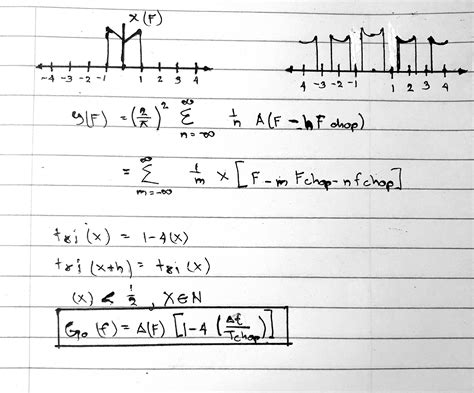 X(F)
-4 -3 -2 -1 1 2 3 4
4 -3 -2 -1 1 2 3 4
y(F) = (2/π)² ∞ Σ n=-∞ 1/n A(F - nFchop)
= ∞ Σ m=-∞ 1/m X[F - m Fchop - nfchop]
tri(x) = 1-4(x)
tri(x+n) = tri(x)
(x) < 1/2, X∈N
Go(f) = A(F) [1-4(Δt/Tchop)]